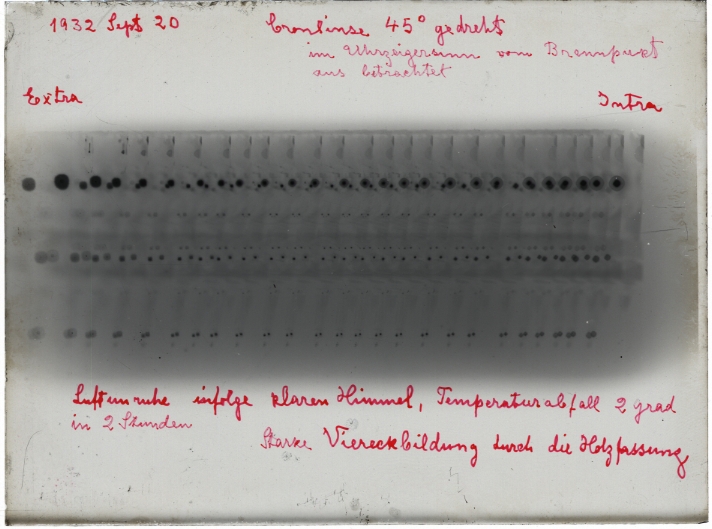 1932 Sept 20 Cronlinse 45° gedreht
im Uhrzeigersinn vom Brennpukt
aus betrachtet
Extra Intra
Luftunruhe infolge klaren Himmel, Temperaturabfall 2 grad
in 2 Stunden
Starke Viereckbildung durch die Holzfassung